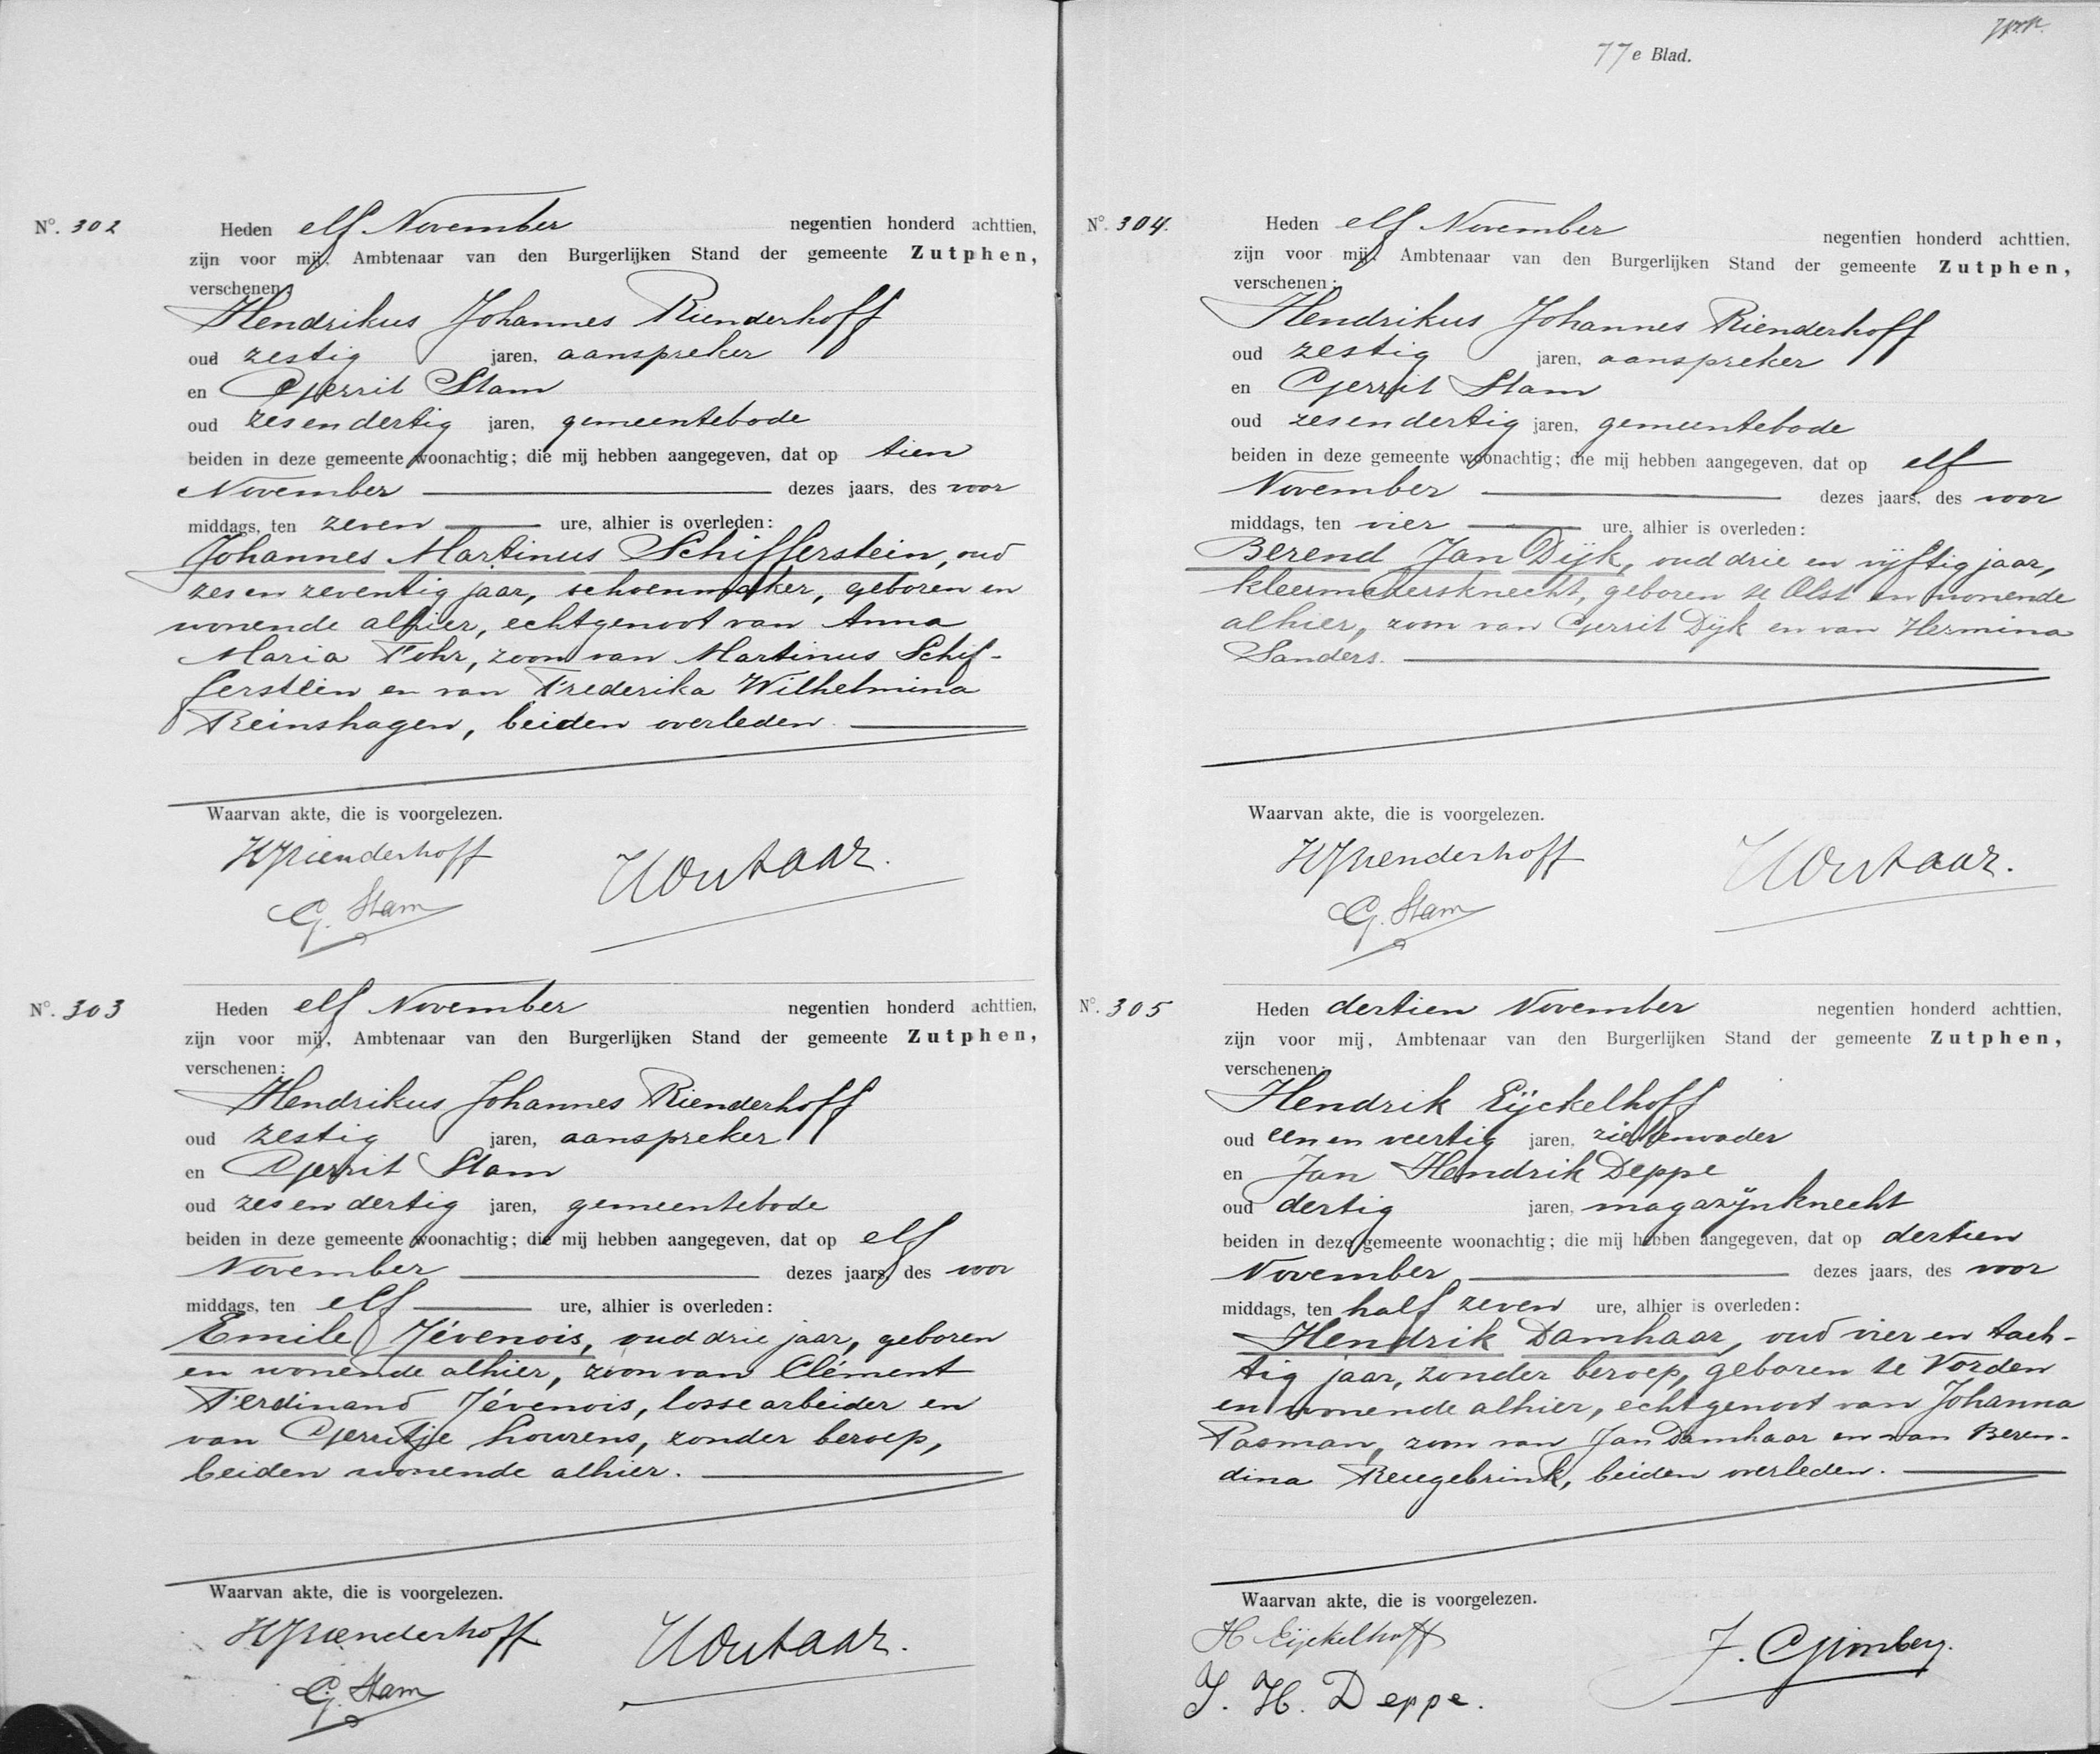 N°. 302
Heden elf November negentien honderd achttien,
zijn voor mij, Ambtenaar van den Burgerlijken Stand der gemeente Zutphen,
verschenen:
Hendrikus Johannes Rienderhoff
oud zestig jaren, aanspreker
en Gerrit Stam
oud zesendertig jaren, gemeentebode
beiden in deze gemeente woonachtig; die mij hebben aangegeven, dat op tien
November dezes jaars, des voor
middags, ten zeven ure, alhier is overleden:
Johannes Martinus Schifferstein, oud
zes en zeventig jaar, schoenmaker, geboren en
wonende alhier, echtgenoot van Anna
Maria Fohr, zoon van Martinus Schif-
ferstein en van Frederika Wilhelmina
Reinshagen, beiden overleden.
Waarvan akte, die is voorgelezen.
HJRienderhoff
G. Stam
N°. 303
Heden elf November negentien honderd achttien,
zijn voor mij, Ambtenaar van den Burgerlijken Stand der gemeente Zutphen,
verschenen:
Hendrikus Johannes Rienderhoff
oud zestig jaren, aanspreker
en Gerrit Stam
oud zesendertig jaren, gemeentebode
beiden in deze gemeente woonachtig; die mij hebben aangegeven, dat op elf
November dezes jaars, des voor
middags, ten elf ure, alhier is overleden:
Emile Jévenois, oud drie jaar, geboren
en wonende alhier, zoon van Clément
Ferdinand Jévenois, losse arbeider en
van Gerritje Lourens, zonder beroep,
beiden wonende alhier.
Waarvan akte, die is voorgelezen.
HJRienderhoff
G. Stam
77e Blad.
N°. 304.
Heden elf November negentien honderd achttien,
zijn voor mij, Ambtenaar van den Burgerlijken Stand der gemeente Zutphen,
verschenen:
Hendrikus Johannes Rienderhoff
oud zestig jaren, aanspreker
en Gerrit Stam
oud zesendertig jaren, gemeentebode
beiden in deze gemeente woonachtig; die mij hebben aangegeven, dat op elf
November dezes jaars, des voor
middags, ten vier ure, alhier is overleden:
Berend Jan Dijk, oud drie en vijftig jaar,
kleermakersknecht, geboren te Olst en wonende
alhier, zoon van Gerrit Dijk en van Hermina
Sanders.
Waarvan akte, die is voorgelezen.
HJRienderhoff
G. Stam
N°. 305
Heden dertien November negentien honderd achttien,
zijn voor mij, Ambtenaar van den Burgerlijken Stand der gemeente Zutphen,
verschenen:
Hendrik Eijckelhoff
oud een en veertig jaren, ziekenvader
en Jan Hendrik Deppe
oud dertig jaren, magazijnknecht
beiden in deze gemeente woonachtig; die mij hebben aangegeven, dat op dertien
November dezes jaars, des voor
middags, ten half zeven ure, alhier is overleden:
Hendrik Damhaar, oud vier en tach-
tig jaar, zonder beroep, geboren te Vorden
en wonende alhier, echtgenoot van Johanna
Pasman, zoon van Jan Damhaar en van Beren-
dina Reugebrink, beiden overleden.
Waarvan akte, die is voorgelezen.
H Eijckelhoff
J. H. Deppe.
J. Gimberg.